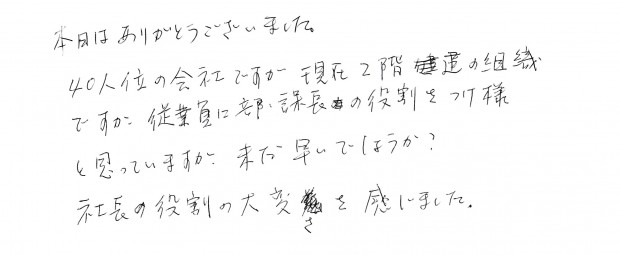 本日はありがとうございました。
40人位の会社ですが現在2階建の組織
ですが、従業員に部・課長の役割をつけ様
と思っていますが、未だ早いでしょうか?
社長の役割の大変さを感じました。